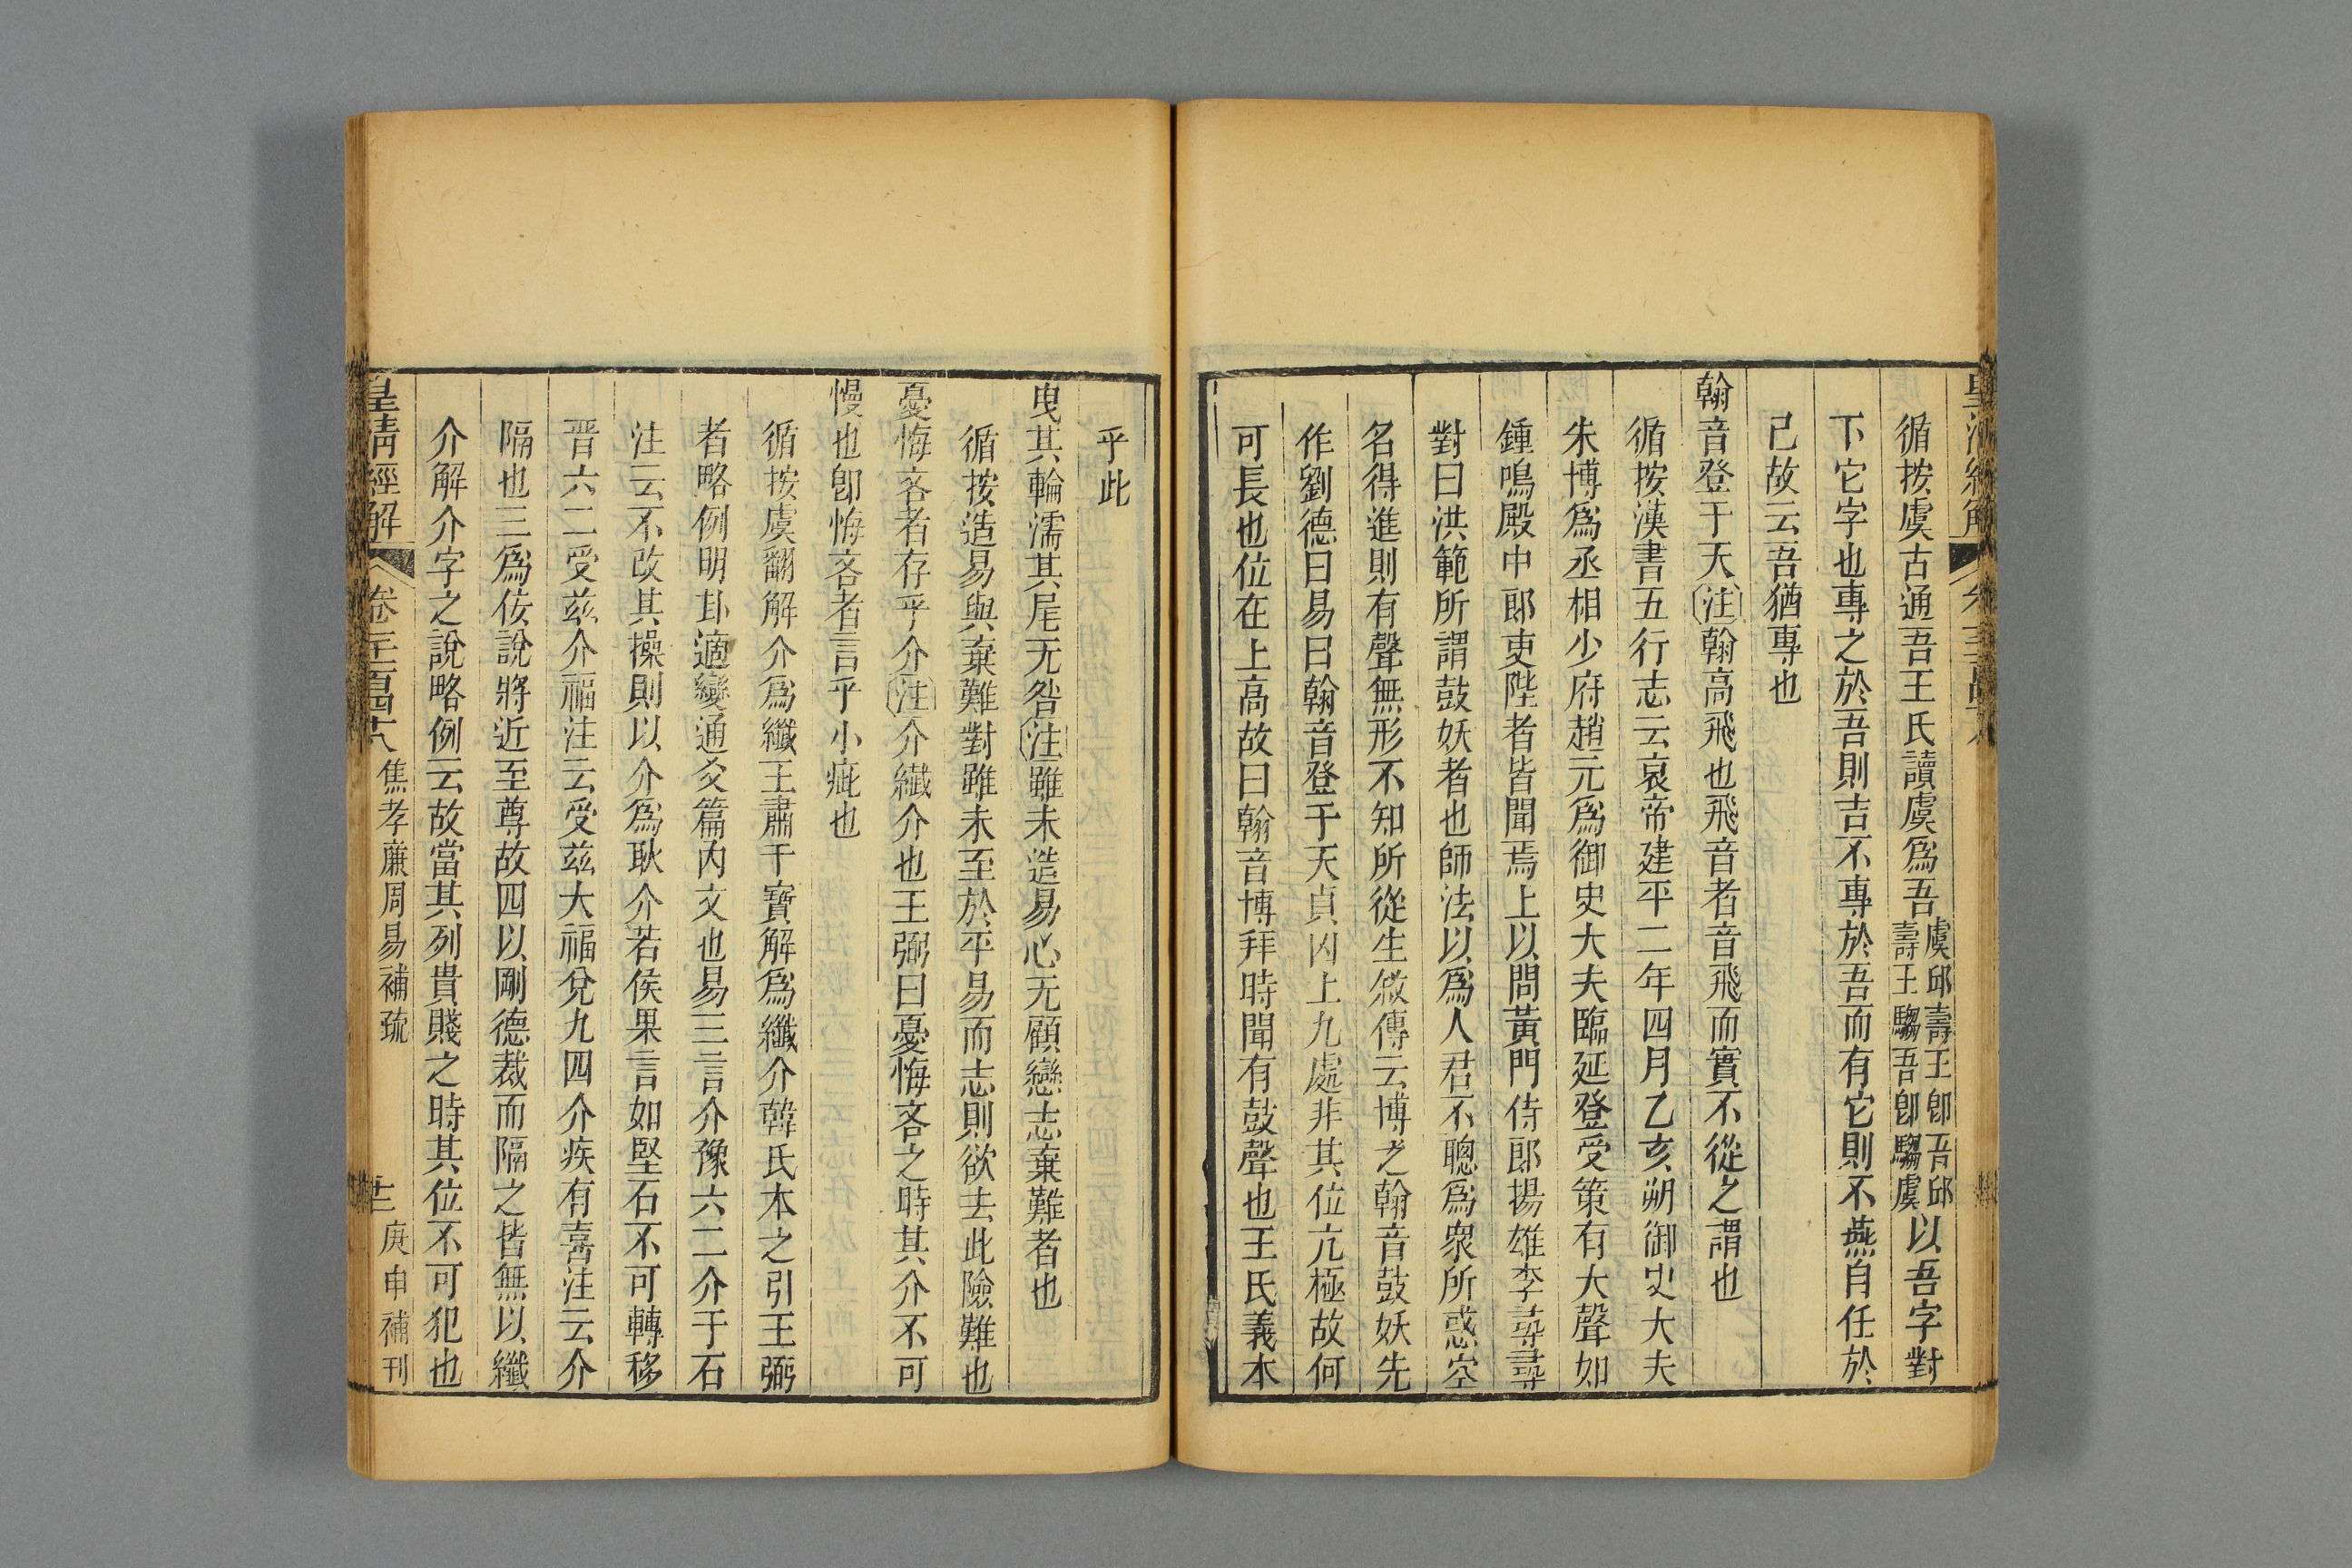 循按虞古通吾王氏讀虞爲吾虞邱壽王卽吾邱壽王騶吾卽騶虞以吾字對
下它字也專之於吾則吉不專於吾而有它則不燕自任於
己故云吾猶專也
翰音登于天注翰高飛也飛音者音飛而實不從之謂也
循按漢書五行志云哀帝建平二年四月乙亥朔御史大夫
朱博爲丞相少府趙元爲御史大夫臨延登受策有大聲如
鍾鳴殿中郎吏陛者皆聞焉上以問黃門侍郎揚雄李尋尋
對曰洪範所謂鼓妖者也師法以爲人君不聰爲衆所惑空
名得進則有聲無形不知所從生敘傳云博之翰音鼓妖先
作劉德曰易曰翰音登于天貞凶上九處非其位亢極故何
可長也位在上高故曰翰音博拜時聞有鼓聲也王氏義本
乎此
曳其輪濡其尾无咎注雖未造易心无顧戀志棄難者也
循按造易與棄難對雖未至於平易而志則欲去此險難也
憂悔吝者存乎介注介纖介也王弼曰憂悔吝之時其介不可
慢也卽悔吝者言乎小疵也
循按虞翻解介爲纖王肅干寶解爲纖介韓氏本之引王弼
者略例明卦適變通爻篇內文也易三言介豫六二介于石
注云不改其操則以介爲耿介若侯果言如堅石不可轉移
晉六二受茲介福注云受茲大福兌九四介疾有喜注云介
隔也三爲佞說將近至尊故四以剛德裁而隔之皆無以纖
介解介字之說略例云故當其列貴賤之時其位不可犯也
皇清經解 卷一千一百四十八 焦孝廉周易補疏 十二 庚申補刊